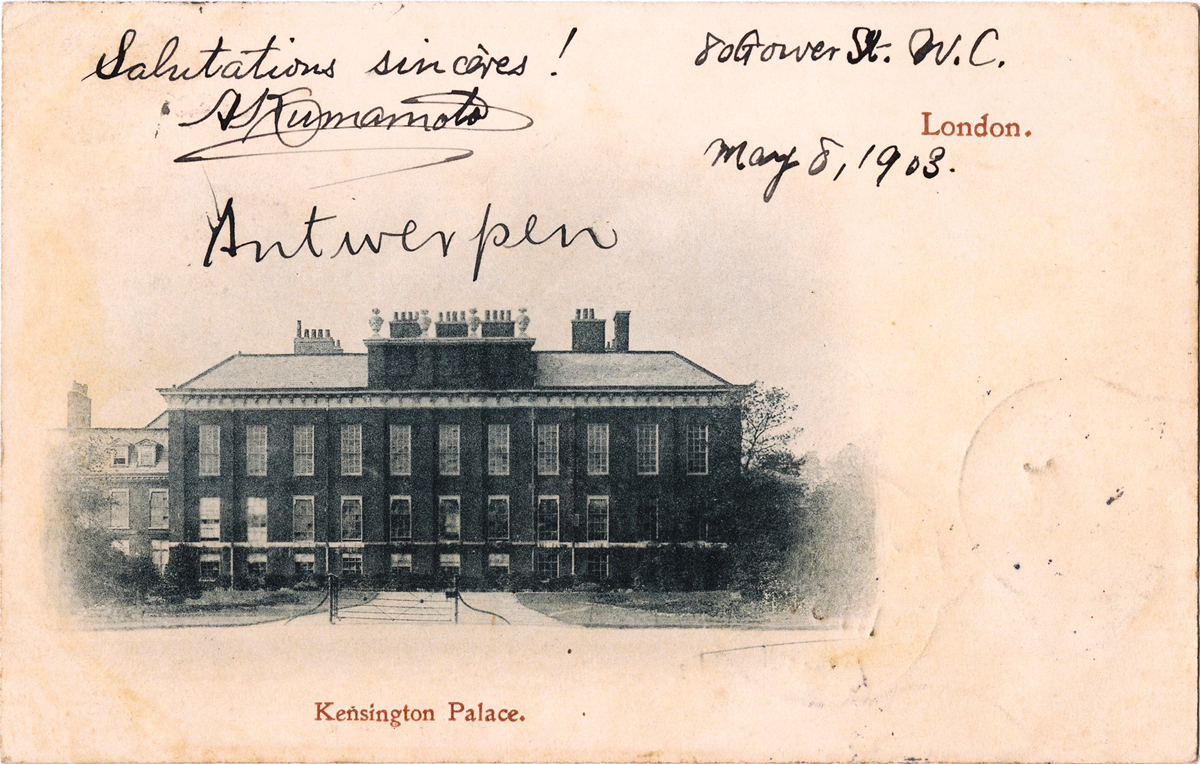 Salutations sincères !
A Kumamoto
80 Gower St. W.C.
London.
May 8, 1903.
Antwerpen
Kensington Palace.